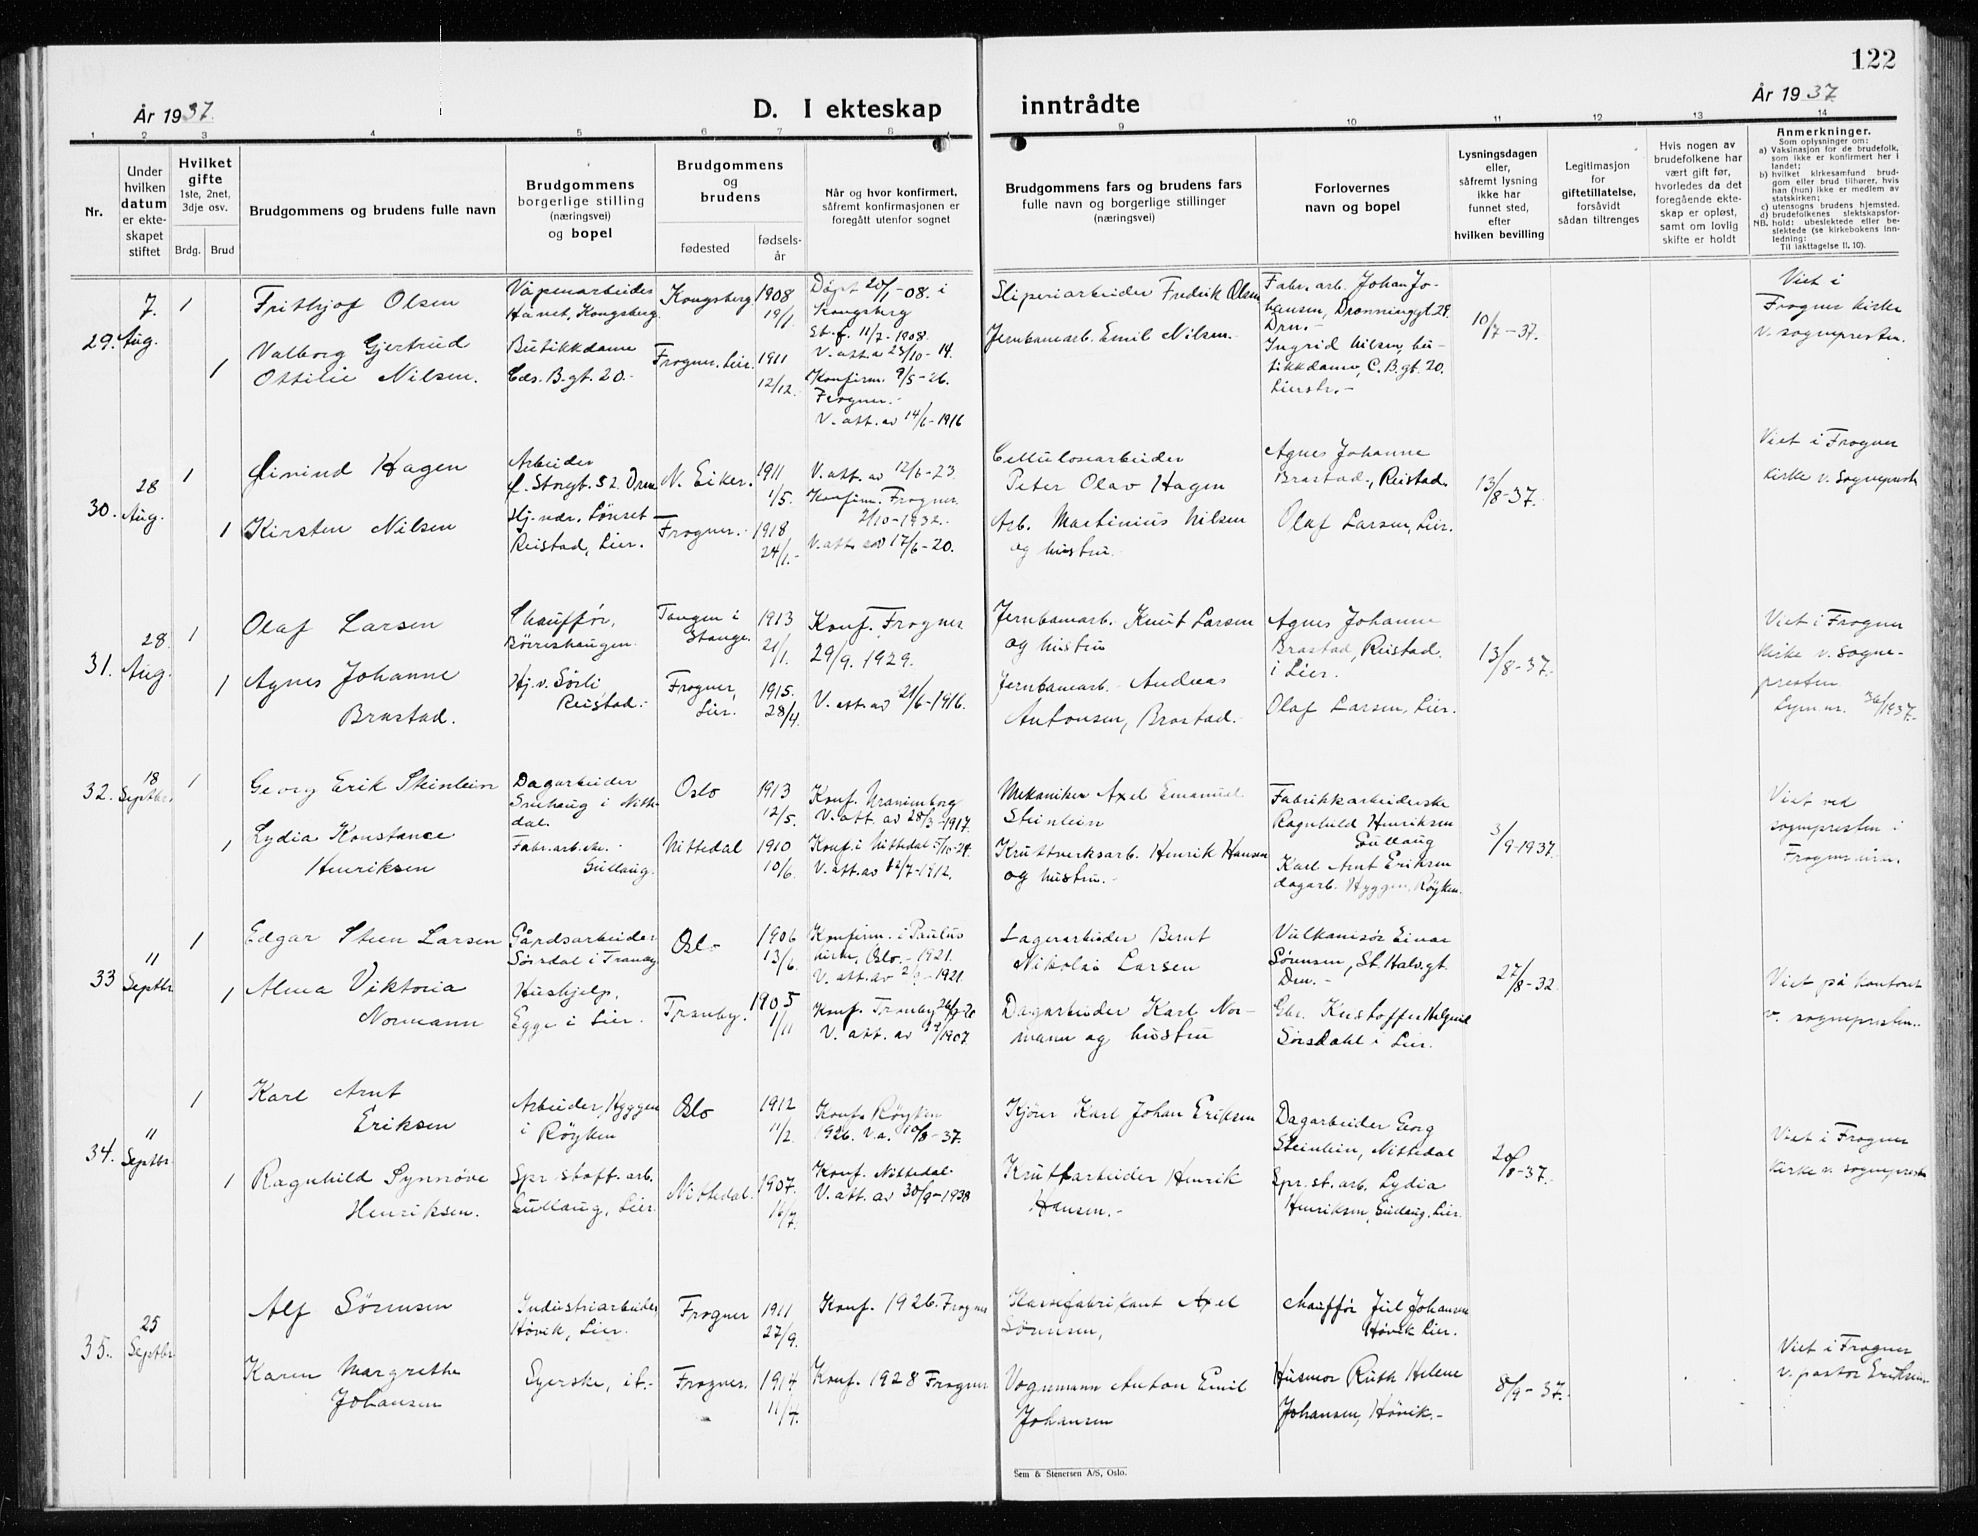 122
År 1937.
D. I ekteskap inntrådte
År 1937
1 2 3 4 5 6 7 8 9 10 11 12 13 14
Nr.
Under hvilken datum er ekte-skapet stiftet
Hvilket gifte
1ste, 2net, 3dje osv.
Brdg. Brud
Brudgommens og brudens fulle navn
Brudgommens borgerlige stilling (næringsvei) og bopel
Brudgommens og brudens
fødested
fødsels-år
Når og hvor konfirmert, såfremt konfirmasjonen er foregått utenfor sognet
Brudgommens fars og brudens fars fulle navn og borgerlige stillinger (næringsvei)
Forlovernes navn og bopel
Lysningsdagen eller, såfremt lysning ikke har funnet sted, efter hvilken bevilling
Legitimasjon for giftetillatelse, forsåvidt sådan tiltrenges
Hvis nogen av brudefolkene har vært gift før, hvorledes da det foregående ekte-skap er opløst, samt om lovlig skifte er holdt
Anmerkninger.
Som oplysninger om:
a) Vaksinasjon for de brudefolk, som ikke er konfirmert her i landet;
b) hvilket kirkesamfund brud-gom eller brud tilhører, hvis han (hun) ikke er medlem av statskirken;
c) utensogns brudens hjemsted.
d) brudefolkenes slektskapsfor-
NB. hold: ubeslektede eller be-slektede (se kirkebokens inn-ledning:
Til iakttagelse II. 10).
29. 7. Aug.
1
Frithjof Olsen
Våpenarbeider
Håvet, Kongsberg.
Kongsberg
1908
19/1
Døpt 20/1-08. i
Kongsberg
St. f. 11/2-1908.
V. att. a 23/10-14.
Sliperiarbeider Fredrik Olsen
Fabr. arb. Johan Jo-
hansen, Dronninggt. 29.
Drn.-
10/7-37.
Viet i
Frogner kirke
v. sognepresten.
1
Valborg Gjertrud
Ottilie Nilsen.
Butikkdame
C.B. gt. 20.-
Frogner, Lier.
1911
12/12.
Konfirm. 9/5-26.
Frogner.-
V. att. av 14/6-1916
Jernbanearb. Emil Nilsen.-
Ingrid Nilsen, bu-
tikkdame, C.B. gt. 20.
Lierstr.-
30. 28 Aug.
1
Eivind Hagen
Arbeider
Storgt. 52. Drm
N. Eiker.
1911
1/5.
V. att. av 12/6-23.
Cellulosearbeider
Peter Olav Hagen
Agnes Johanne
Brastad, Reistad.
13/8-37.
Viet i Frogner
kirke v. Sognepresten
1
Kirsten Nilsen
Hj. vær. Lønset
Reistad, Lier.
Frogner.-
1918
24/1.-
Konfirm. Frogner
2/10-1932.-
V. att. av 17/6-20.
Arb. Martinius Nilsen
og hustru.
Olaf Larsen, Lier.
31. 28. Aug.
1
Olaf Larsen
Chauffør,
Børreshaugen.
Tangen i
Stange.
1913
21/1.
Konf. Frogner
29/9. 1929.
Jernbanearb. Knut Larsen
og hustru
Agnes Johanne
Brastad, Reistad.
i Lier.
13/8-37.
Viet i Frogner
kirke v. sogne-
presten.
Lysn. nr. 36/1937.
1
Agnes Johanne
Brastad.
Hj. v. Sørli
Reistad.-
Frogner,
Lier.
1915.
28/4.
V. att. av 21/6-1916.
Jernbanearb. Andreas
Antonsen, Brastad.-
Olaf Larsen, Lier.
32. 18 Septbr.
1
Georg Erik Steinlein
Dagarbeider
Snehaug i Nitte-
dal.
Oslo
1913
12/5.
Konf. Uranienborg
V. att. av 28/3-1917.
Mekaniker Axel Emanuel
Steinlein
Fabrikkarbeiderske
Ragnhild Henriksen
Gullaug
3/9-1937.
Viet ved
sognepresten i
Frogner kirke.
1
Lydia Konstance
Henriksen
Fabr. arb. ske.-
Gullaug.
Nittedal
1910
10/6.
Konf. i Nittedal 5/10-24.
V. att. av 12/7-1912.
Kruttverksarb. Henrik Hansen
og hustru.-
Karl Arnt Eriksen
dagarb. Hyggen, Røyken.
33 11 Septbr
1
Edgar Steen Larsen
Gårdsarbeider
Sørsdal i Tranby
Oslo
1906
13/6.
Konfirm. i Paulus
kirke, Oslo.- 1921.
V. att. av -1921.
Lagerarbeider Bernt
Nikolai Larsen
Vulkanisør Einar
Sørensen, St. Halv. gt.
Drn.-
27/8-32.
Viet på kontoret
v. sognepresten.
1
Alma Viktoria
Normann
Hushjelp,
Egge i Lier.
Tranby.
1905
1/11
Konf. Tranby 26/9-20
V. att. av /1907.
Dagarbeider Karl Nor-
mann og hustru
Gbr. Kristoffer Helgerud
Sørsdahl i Lier.
34. 11 Septbr
1
Karl Arnt
Eriksen
Arbeider, Hyggen
i Røyken
Oslo
1912
11/2.
Konf. Røyken
1926. V.a. 10/8-37.
Kjører Karl Johan Eriksen
Dagarbeider Georg
Steinlein, Nittedal
20/8-37.
Viet i Frogner
kirke v. sognepresten
1
Ragnhild Synnøve
Henriksen.
Spr. stoff. arb.
Gullaug, Lier.
Nittedal.
1907.
16/7.
Konf. Nittedal.
V. att. av 30/9-1938
Kruttarbeider Henrik
Hansen.-
Spr. st. arb. Lydia
Henriksen, Gullaug, Lier.
35. 25 Septbr
Alf Sørensen
Industriarbeider,
Høvik, Lier.
Frogner
1911
27/9.
Konf. 1926. Frogner
Kassefabrikant Axel
Sørensen,
Chauffør Juel Johansen
Høvik Lier.
8/9-37.
Viet i Frogner
v. pastor Eriksen
Karen Margrethe
Johansen
Syerske, ib.-
Frogner.
1914
11/4.
Konf. 1928 Frogner
Vognmann Anton Emil
Johansen
Husmor Ruth Helene
Johansen, Høvik.-
Sem & Stenersen A/S, Oslo.